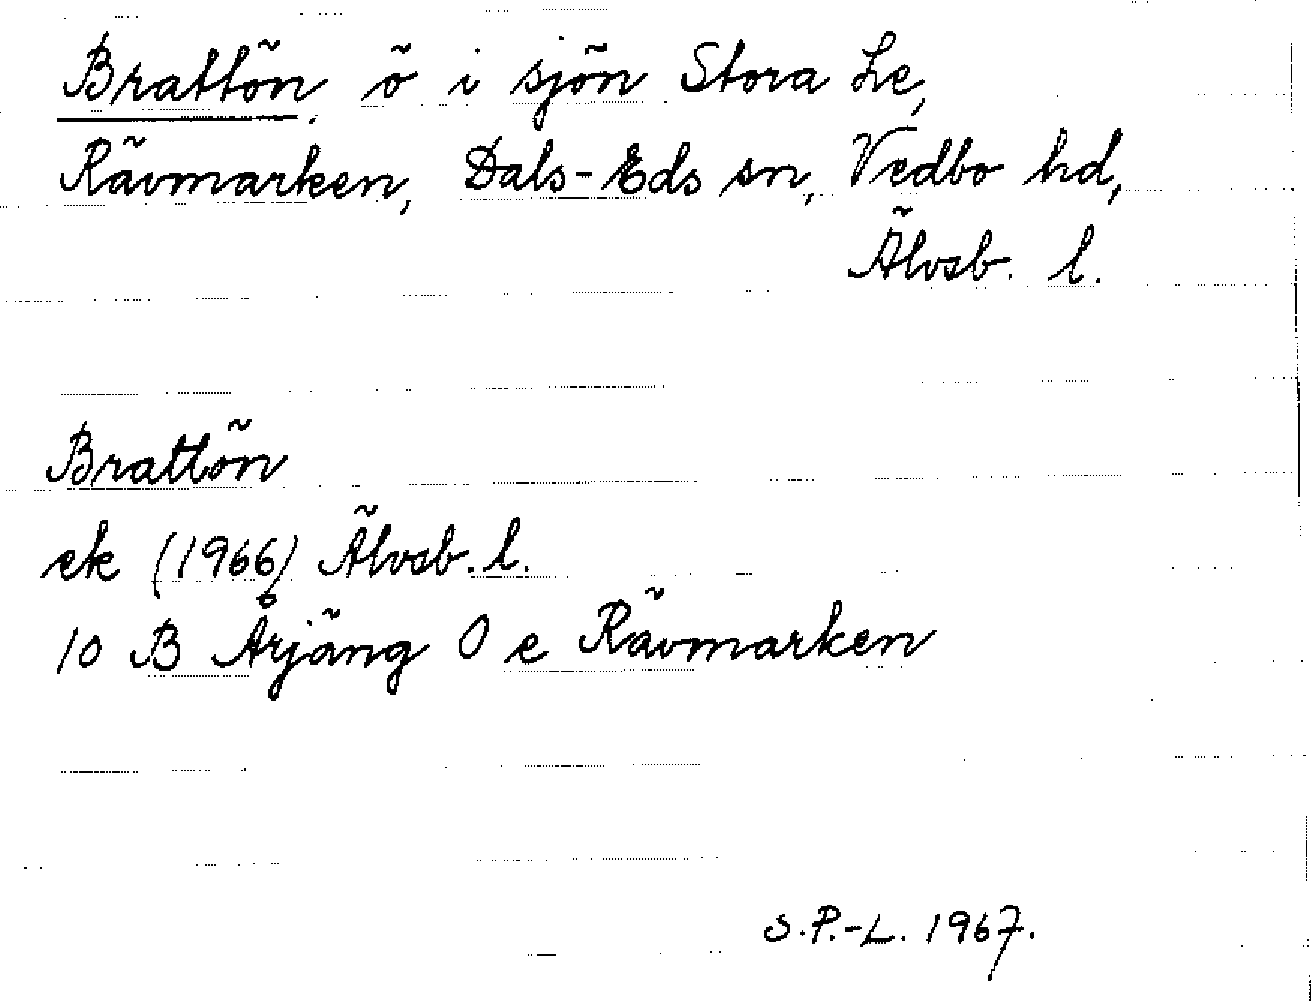 Brattön, ö i sjön Stora Le,
Rävmarken, Dals-Eds sn, Vedbo hd,
Älvsb. l.
Brattön
ek (1966) Älvsb. l.
10 B Årjäng 0 e Rävmarken
S.P.-L. 1967.